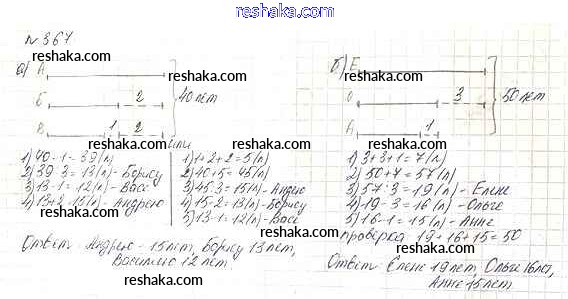 reshaka.com
№ 367
а) А
Б 2
В 1 2
40 лет
или
1) 40-1=39(л)
2) 39:3=13(л)-Борису
3) 13-1=12(л)-Васе
4) 13+2=15(л)-Андрею
1) 1+2+2=5(л)
2) 40+5=45(л)
3) 45:3=15(л)-Андрею
4) 15-2=13(л)-Борису
5) 13-1=12(л)-Васе
Ответ: Андрею - 15 лет, Борису 13 лет,
Василию 12 лет
б) Е
О 3
А 1
50 лет
1) 3+3+1=7(л)
2) 50+7=57(л)
3) 57:3=19(л)-Елене
4) 19-3=16(л)-Ольге
5) 16-1=15(л)-Анне
проверка 19+16+15=50
Ответ: Елене 19 лет, Ольге 16 лет,
Анне 15 лет
reshaka.com
reshaka.com
reshaka.com
reshaka.com
reshaka.com
reshaka.com
reshaka.com
reshaka.com
reshaka.com
reshaka.com
reshaka.com